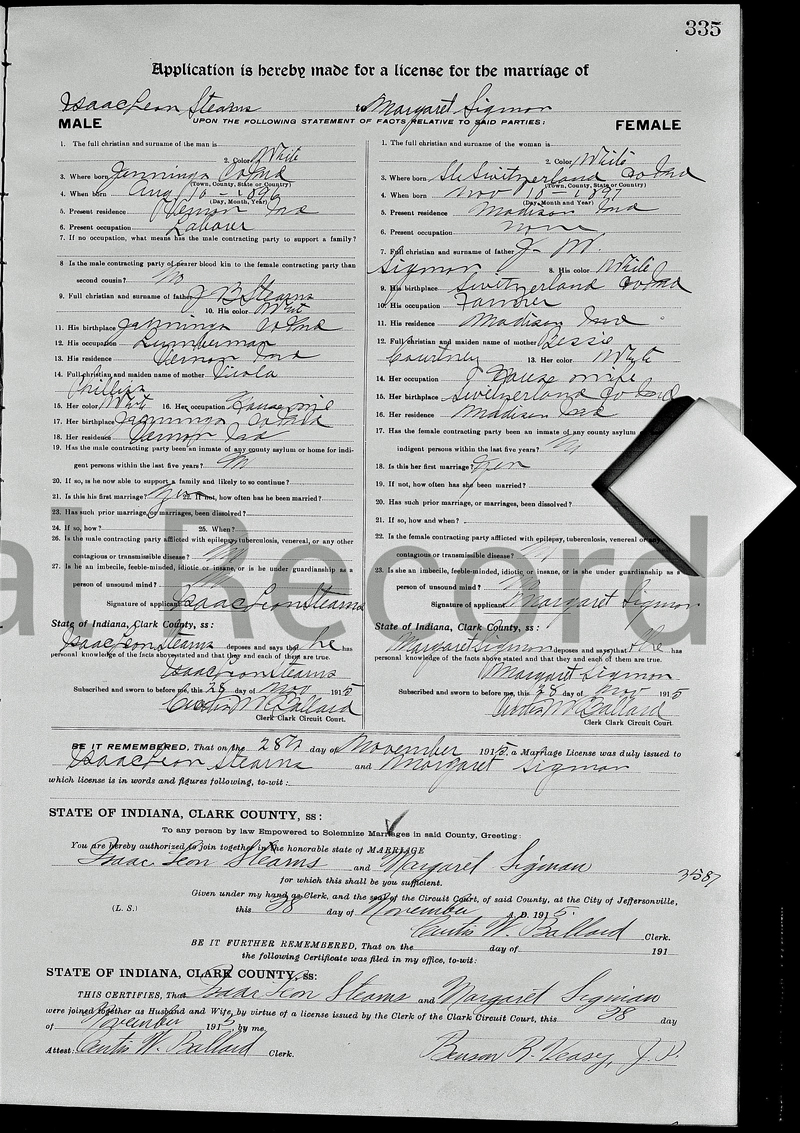 335
Application is hereby made for a license for the marriage of
Isaac Leon Stearns to Margaret Sigmon
MALE UPON THE FOLLOWING STATEMENT OF FACTS RELATIVE TO SAID PARTIES: FEMALE
1. The full christian and surname of the man is
2. Color White
3. Where born Jennings Co Ind
(Town, County, State or Country)
4. When born Aug 10 - 1896
(Day, Month, Year)
5. Present residence Vernon Ind
6. Present occupation Labour
7. If no occupation, what means has the male contracting party to support a family?
8 Is the male contracting party of nearer blood kin to the female contracting party than
second cousin? No
9. Full christian and surname of father J B Stearns
10. His color Whit
11. His birthplace Jennings Co Ind
12. His occupation Lumberman
13. His residence Vernon Ind
14. Full christian and maiden name of mother Viola
Phillips
15. Her color Whit 16. Her occupation House wife
17. Her birthplace Jennings Co Ind
18. Her residence Vernon Ind
19. Has the male contracting party been an inmate of any county asylum or home for indi-
gent persons within the last five years? No
20. If so, is he now able to support a family and likely to so continue?
21. Is this his first marriage? Yes 22. If not, how often has he been married?
23. Has such prior marriage, or marriages, been dissolved?
24. If so, how? 25. When?
26. Is the male contracting party afflicted with epilepsy, tuberculosis, venereal, or any other
contagious or transmissible disease? No
27. Is he an imbecile, feeble-minded, idiotic or insane, or is he under guardianship as a
person of unsound mind? No
Signature of applicant Isaac Leon Stearns
State of Indiana, Clark County, ss:
Isaac Leon Stearns deposes and says that he has
personal knowledge of the facts above stated and that they and each of them are true.
Isaac Leon Stearns
Subscribed and sworn to before me, this 28 day of Nov 1915
Curtis W Ballard
Clerk Clark Circuit Court.
1. The full christian and surname of the woman is
2. Color White
3. Where born Switzerland Co Ind
(Town, County, State or Country)
4. When born Nov 10 - 1897
(Day, Month and Year)
5. Present residence Madison Ind
6. Present occupation None
7. Full christian and surname of father J. W.
Sigmon 8. His color White
9. His birthplace Switzerland Co Ind
10. His occupation Farmer
11. His residence Madison Ind
12. Full christian and maiden name of mother Bessie
Courtney 13. Her color White
14. Her occupation House wife
15. Her birthplace Switzerland Co Ind
16. Her residence Madison Ind
17. Has the female contracting party been an inmate of any county asylum
indigent persons within the last five years? No
18. Is this her first marriage? Yes
19. If not, how often has she been married?
20. Has such prior marriage, or marriages, been dissolved?
21. If so, how and when?
22. Is the female contracting party afflicted with epilepsy, tuberculosis, venereal or any
contagious or transmissible disease?
23. Is she an imbecile, feeble-minded, idiotic or insane, or is she under guardianship as a
person of unsound mind?
Signature of applicant Margaret Sigmon
State of Indiana, Clark County, ss:
Margaret Sigmon deposes and says that she has
personal knowledge of the facts above stated and that they and each of them are true.
Margaret Sigmon
Subscribed and sworn to before me, this 28 day of Nov 1915
Curtis W Ballard
Clerk Clark Circuit Court
al Record
BE IT REMEMBERED, That on the 28th day of November 1915, a Marriage License was duly issued to
Isaac Leon Stearns and Margaret Sigmon
which license is in words and figures following, to-wit:
STATE OF INDIANA, CLARK COUNTY, ss:
To any person by law Empowered to Solemnize Marriages in said County, Greeting:
You are hereby authorized to join together in the honorable state of MARRIAGE
Isaac Leon Stearns and Margaret Sigman 3587
for which this shall be you sufficient.
Given under my hand as Clerk, and the seal of the Circuit Court, of said County, at the City of Jeffersonville,
(L. S.) this 28 day of November A. D. 1915.
Curtis W. Ballard Clerk.
BE IT FURTHER REMEMBERED, That on the day of 191
the following Certificate was filed in my office, to-wit:
STATE OF INDIANA, CLARK COUNTY, ss:
THIS CERTIFIES, That Isaac Leon Stearns and Margaret Sigman
were joined together as Husband and Wife, by virtue of a license issued by the Clerk of the Clark Circuit Court, this 28 day
of November 1915 by me.
Attest: Curtis W. Ballard Clerk. Benson R. Veasy, J. P.